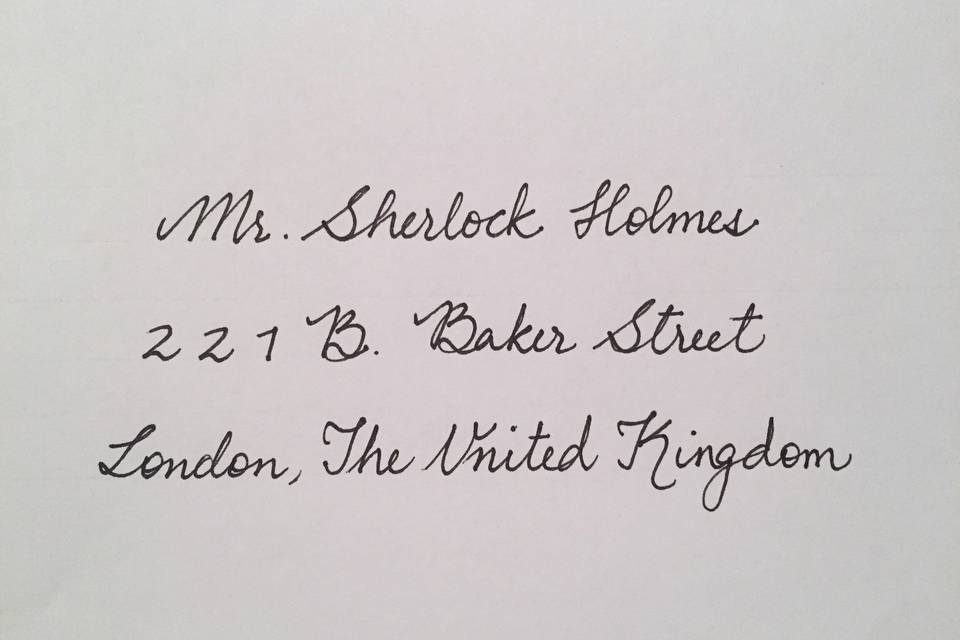 Mr. Sherlock Holmes
221 B. Baker Street
London, The United Kingdom